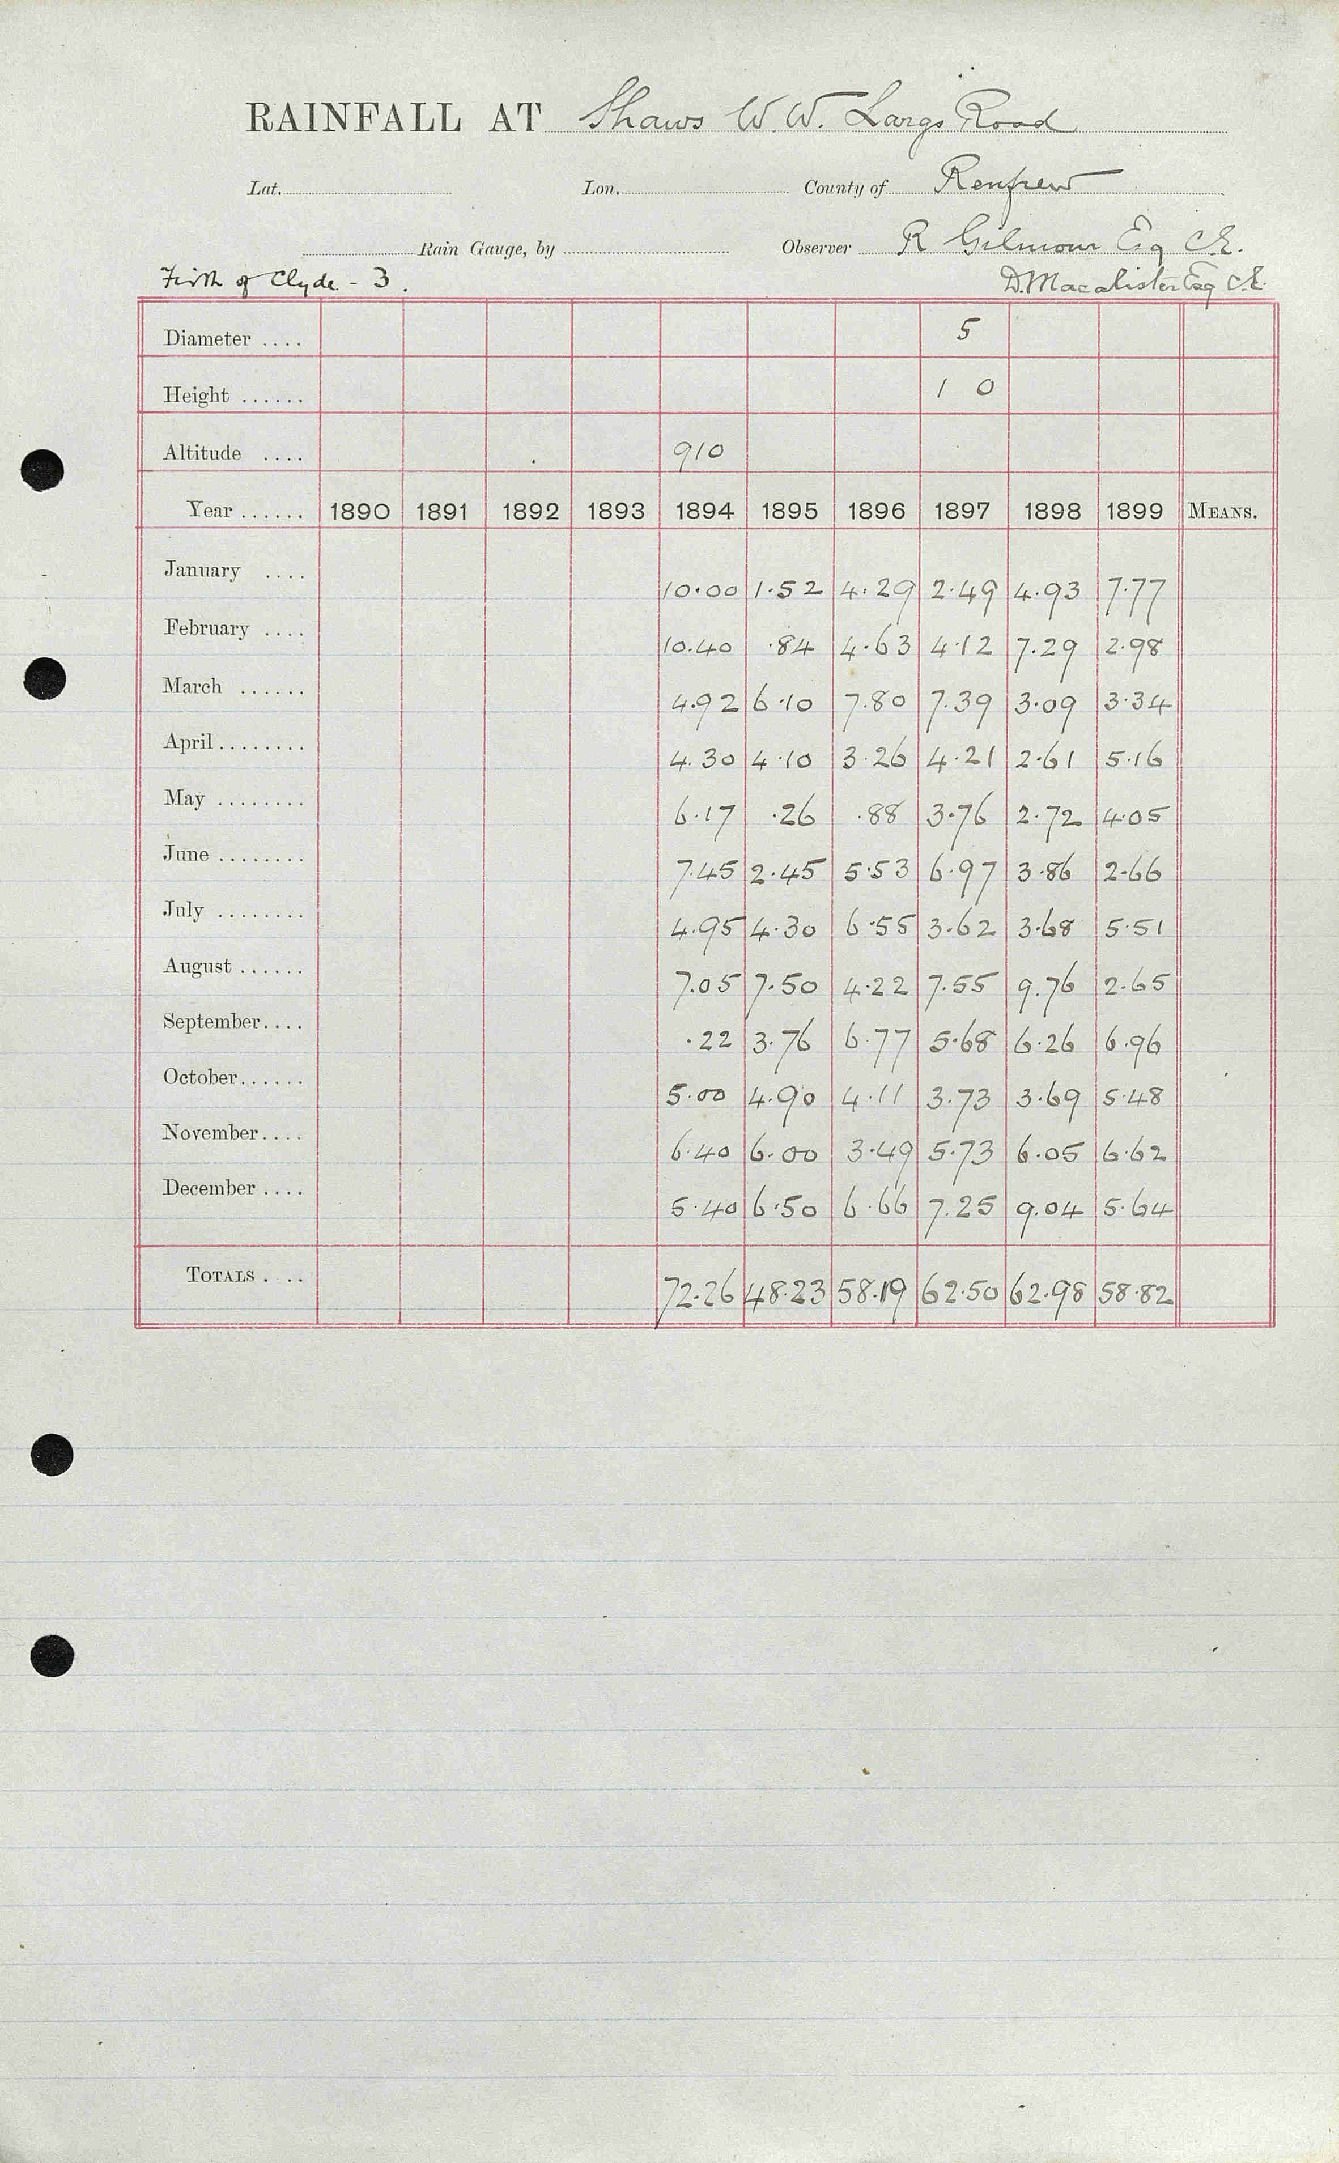 RAINFALL AT Shaws W.W. Largs Road
Lat. Lon. County of Renfrew
Rain Gauge, by Observer R Gilmour Esq C.E.
Firth of Clyde - 3. D. Macalister Esq C.E.
Diameter .... 5
Height ...... 1 0
Altitude .... 910
Year ...... 1890 1891 1892 1893 1894 1895 1896 1897 1898 1899 MEANS.
January .... 10.00 1.52 4.29 2.49 4.93 7.77
February .... 10.40 .84 4.63 4.12 7.29 2.98
March ...... 4.92 6.10 7.80 7.39 3.09 3.34
April ........ 4.30 4.10 3.26 4.21 2.61 5.16
May ........ 6.17 .26 .88 3.76 2.72 4.05
June ........ 7.45 2.45 5.53 6.97 3.86 2.66
July ........ 4.95 4.30 6.55 3.62 3.68 5.51
August ...... 7.05 7.50 4.22 7.55 9.76 2.65
September.... .22 3.76 6.77 5.68 6.26 6.96
October...... 5.00 4.90 4.11 3.73 3.69 5.48
November.... 6.40 6.00 3.49 5.73 6.05 6.62
December .... 5.40 6.50 6.66 7.25 9.04 5.64
TOTALS .... 72.26 48.23 58.19 62.50 62.98 58.82